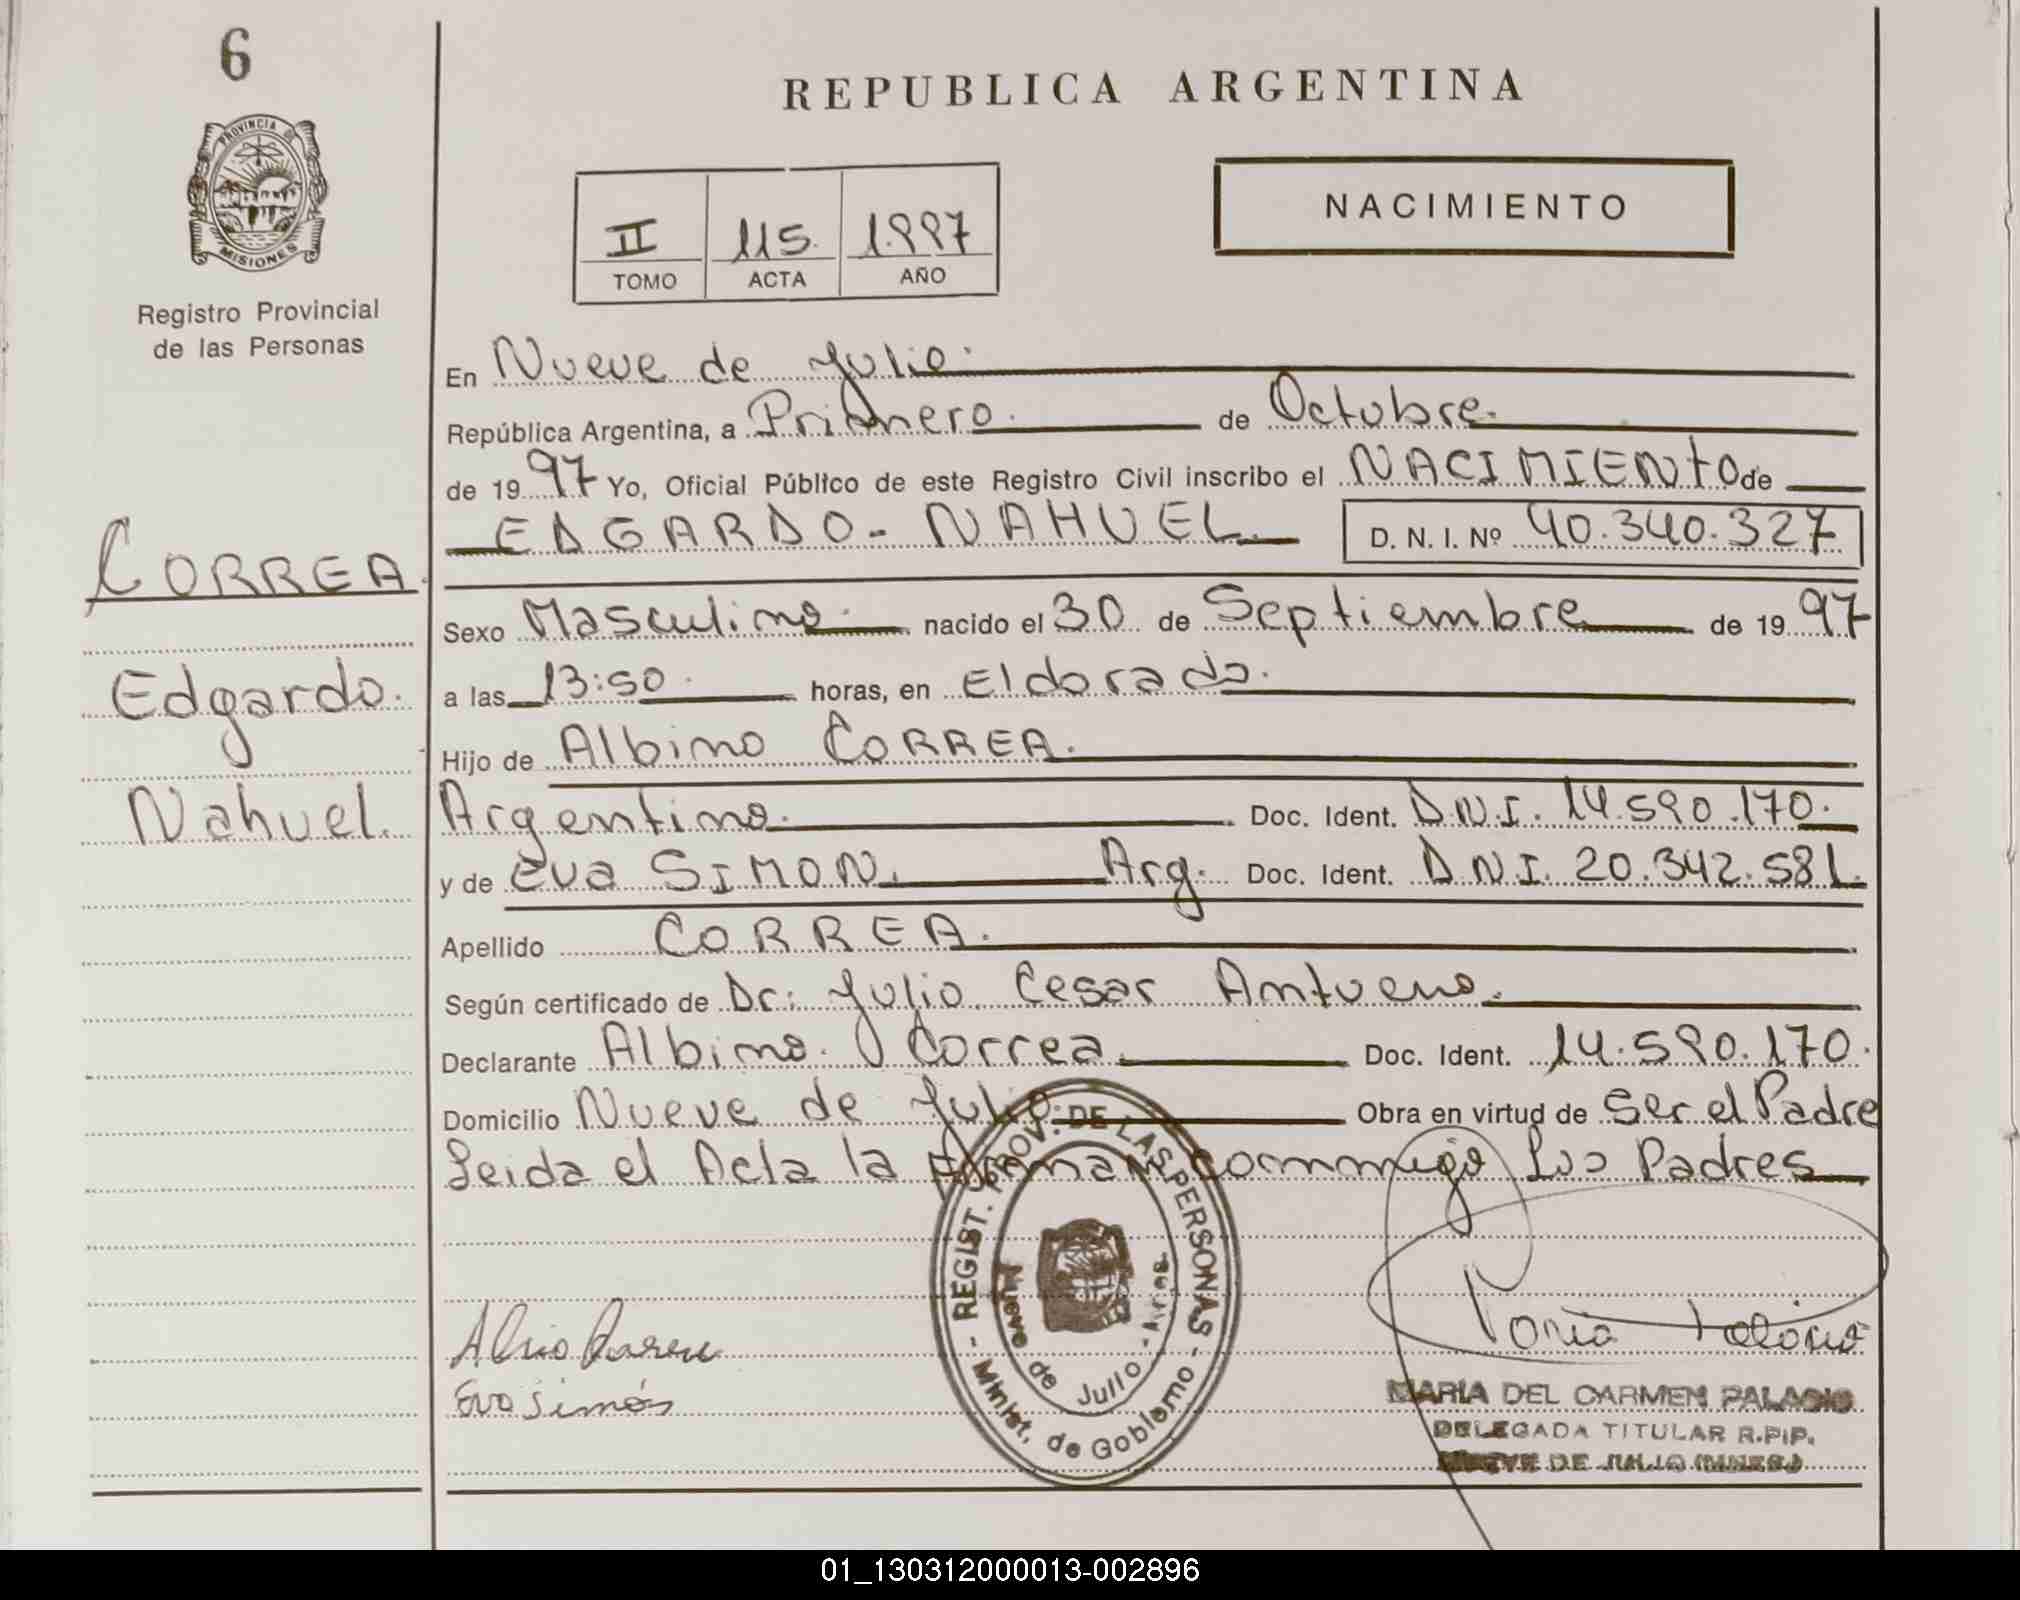 6
PROVINCIA DE
MISIONES
Registro Provincial
de las Personas
REPUBLICA ARGENTINA
II 115. 1.997
TOMO ACTA AÑO
NACIMIENTO
En Nueve de Julio.
República Argentina, a Primero. de Octubre.
de 1997 Yo, Oficial Público de este Registro Civil inscribo el NACIMIENTO de
EDGARDO - NAHUEL. D. N. I. Nº 40.340.327
CORREA.
Edgardo.
Nahuel.
Sexo Masculino. nacido el 30 de Septiembre de 1997
a las 13:50. horas, en Eldorado.
Hijo de Albino CORREA.
Argentino. Doc. Ident. D.N.I. 14.590.170.
y de Eva SIMON. Arg. Doc. Ident. D N I. 20.342.581.
Apellido CORREA.
Según certificado de Dr: Julio Cesar Antueno.
Declarante Albino. Correa. Doc. Ident. 14.590.170.
Domicilio Nueve de Julio. Obra en virtud de Ser el Padre
Leida el Acta la firman conmigo Los Padres
- REGIST. PROV. DE LAS PERSONAS -
Minist. de Gobierno
Nueve de Julio -
Eva Simón
MARIA DEL CARMEN PALACIO
DELEGADA TITULAR R.P.P.
NUEVE DE JULIO (MNES.)
01_130312000013-002896